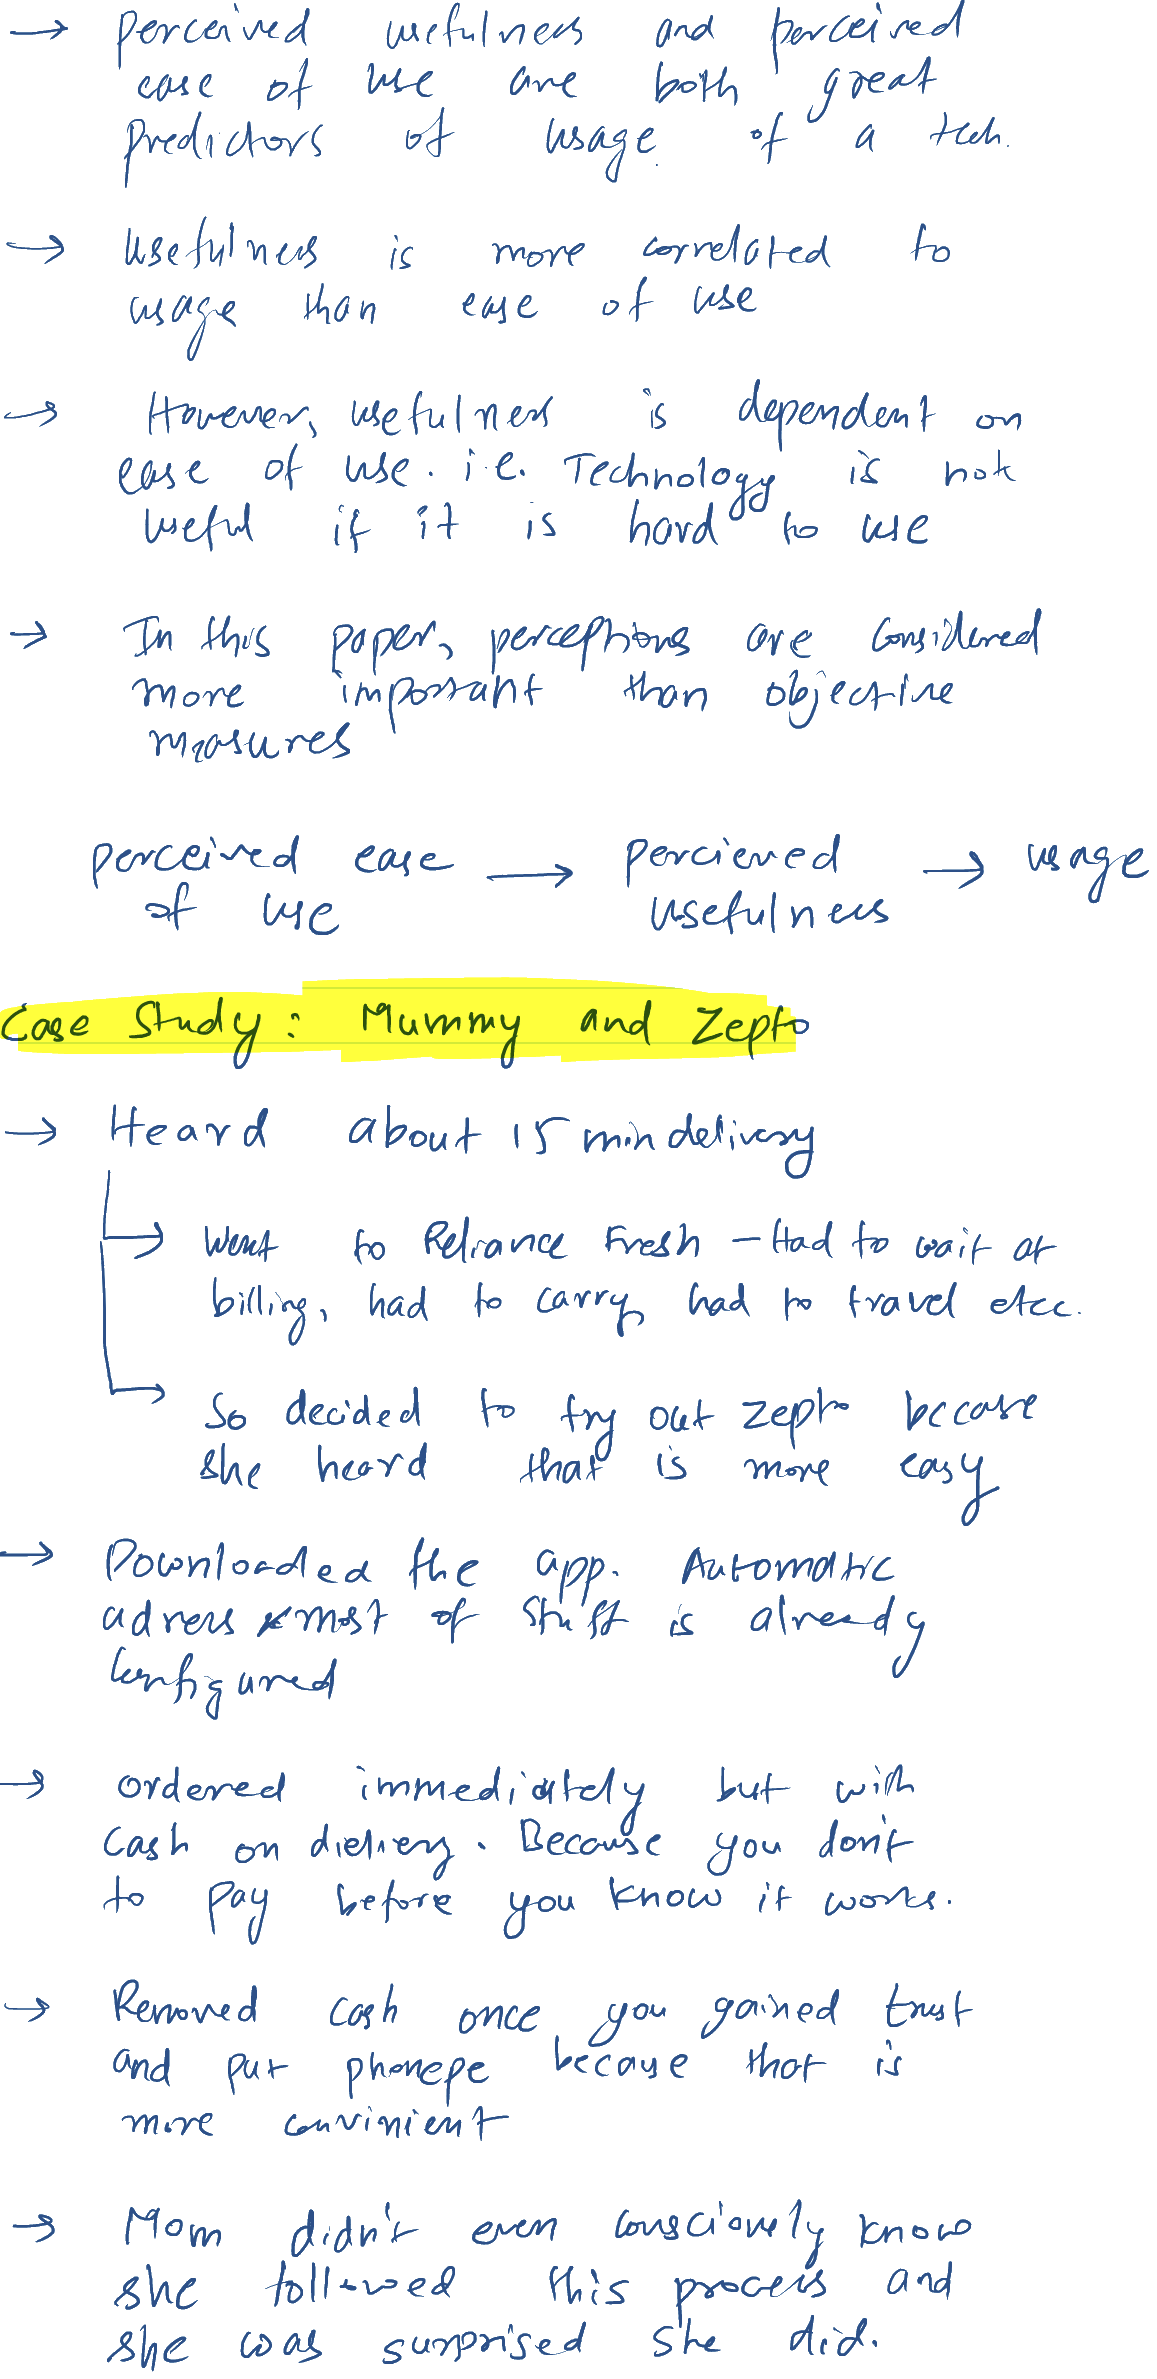 → perceived usefulness and perceived
ease of use are both great
predictors of usage of a tech.
→ Usefulness is more correlated to
usage than ease of use
→ However, usefulness is dependent on
ease of use. i.e. Technology is not
useful if it is hard to use
→ In this paper, perceptions are considered
more important than objective
measures
perceived ease → percieved → usage
of use usefulness
Case Study: Mummy and Zepto
→ Heard about 15 min delivery
→ Went to Reliance Fresh - Had to wait at
billing, had to carry, had to travel etcc.
→ So decided to try out zepto because
she heard that is more easy
→ Downloaded the app. Automatic
adress & most of stuff is already
configured
→ ordered immediately but with
cash on dielvery. Because you don't
to pay before you know it works.
→ Removed cash once you gained trust
and put phonepe because that is
more convinient
→ Mom didn't even consciously know
she followed this process and
she was surprised she did.